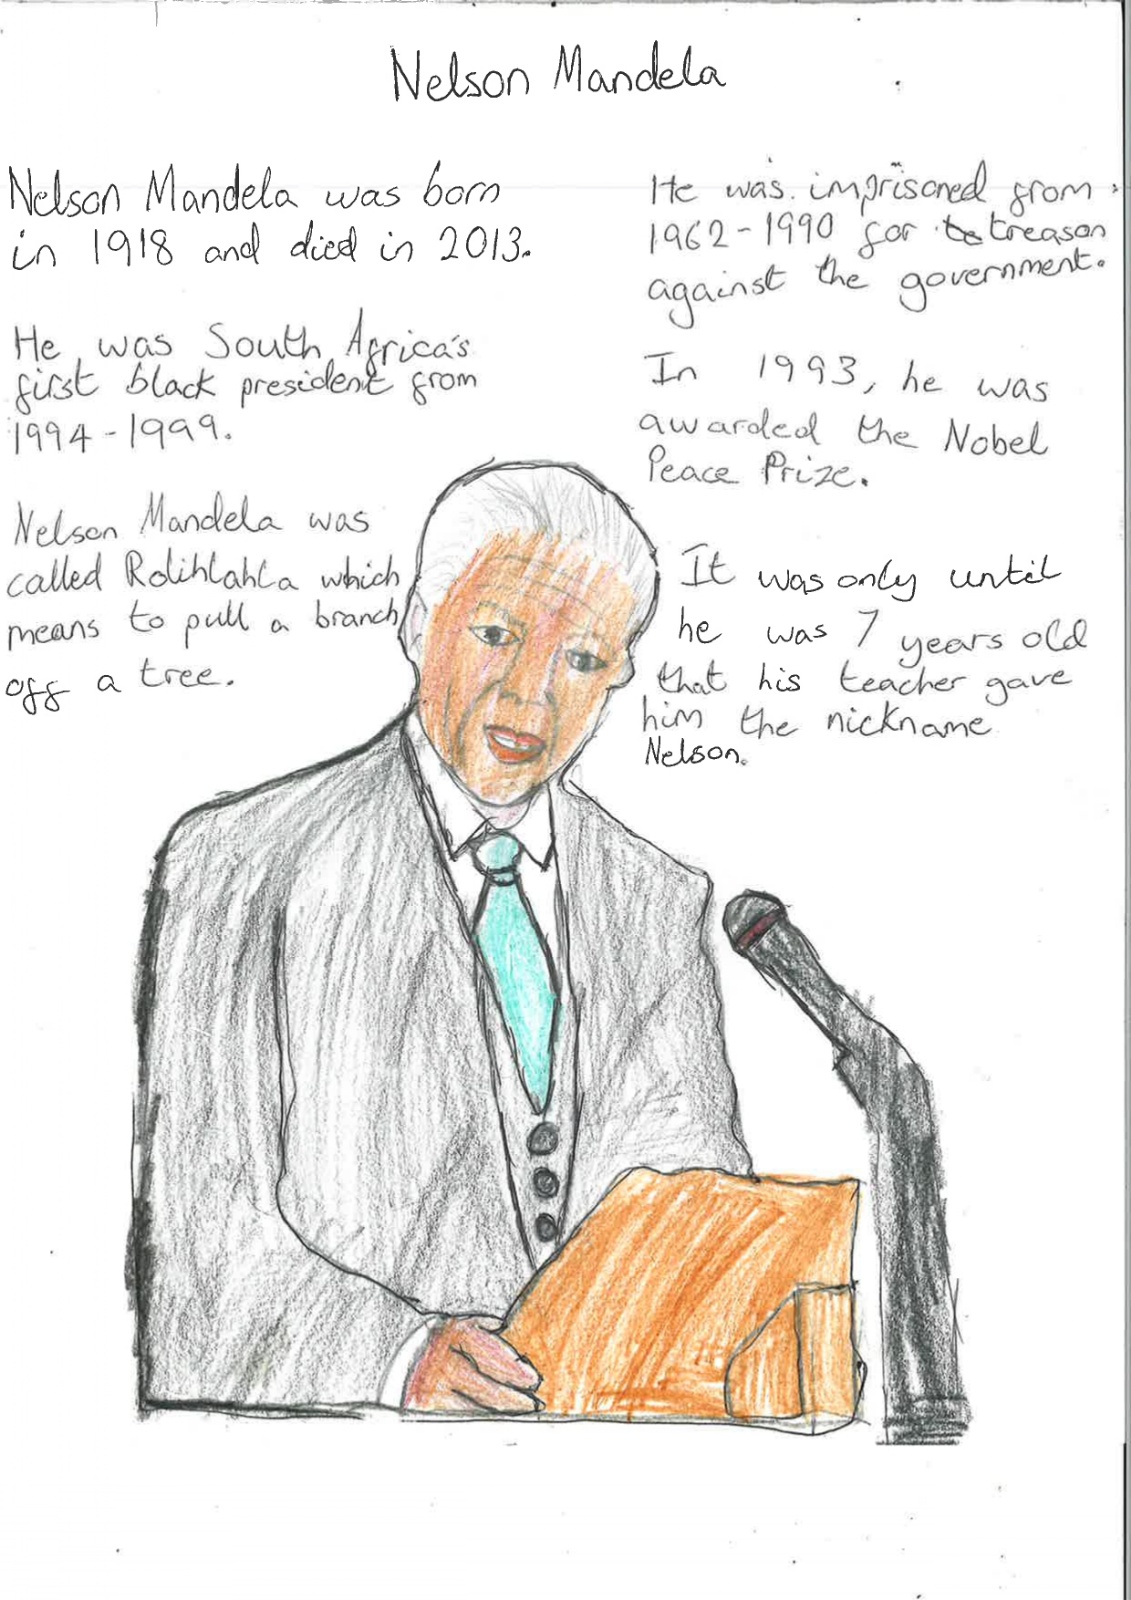 Nelson Mandela
Nelson Mandela was born
in 1918 and died in 2013.
He was South Africa's
first black president from
1994-1999.
Nelson Mandela was
called Rolihlahla which
means to pull a branch
off a tree.
He was imprisoned from
1962-1990 for to treason
against the government.
In 1993, he was
awarded the Nobel
Peace Prize.
It was only until
he was 7 years old
that his teacher gave
him the nickname
Nelson.